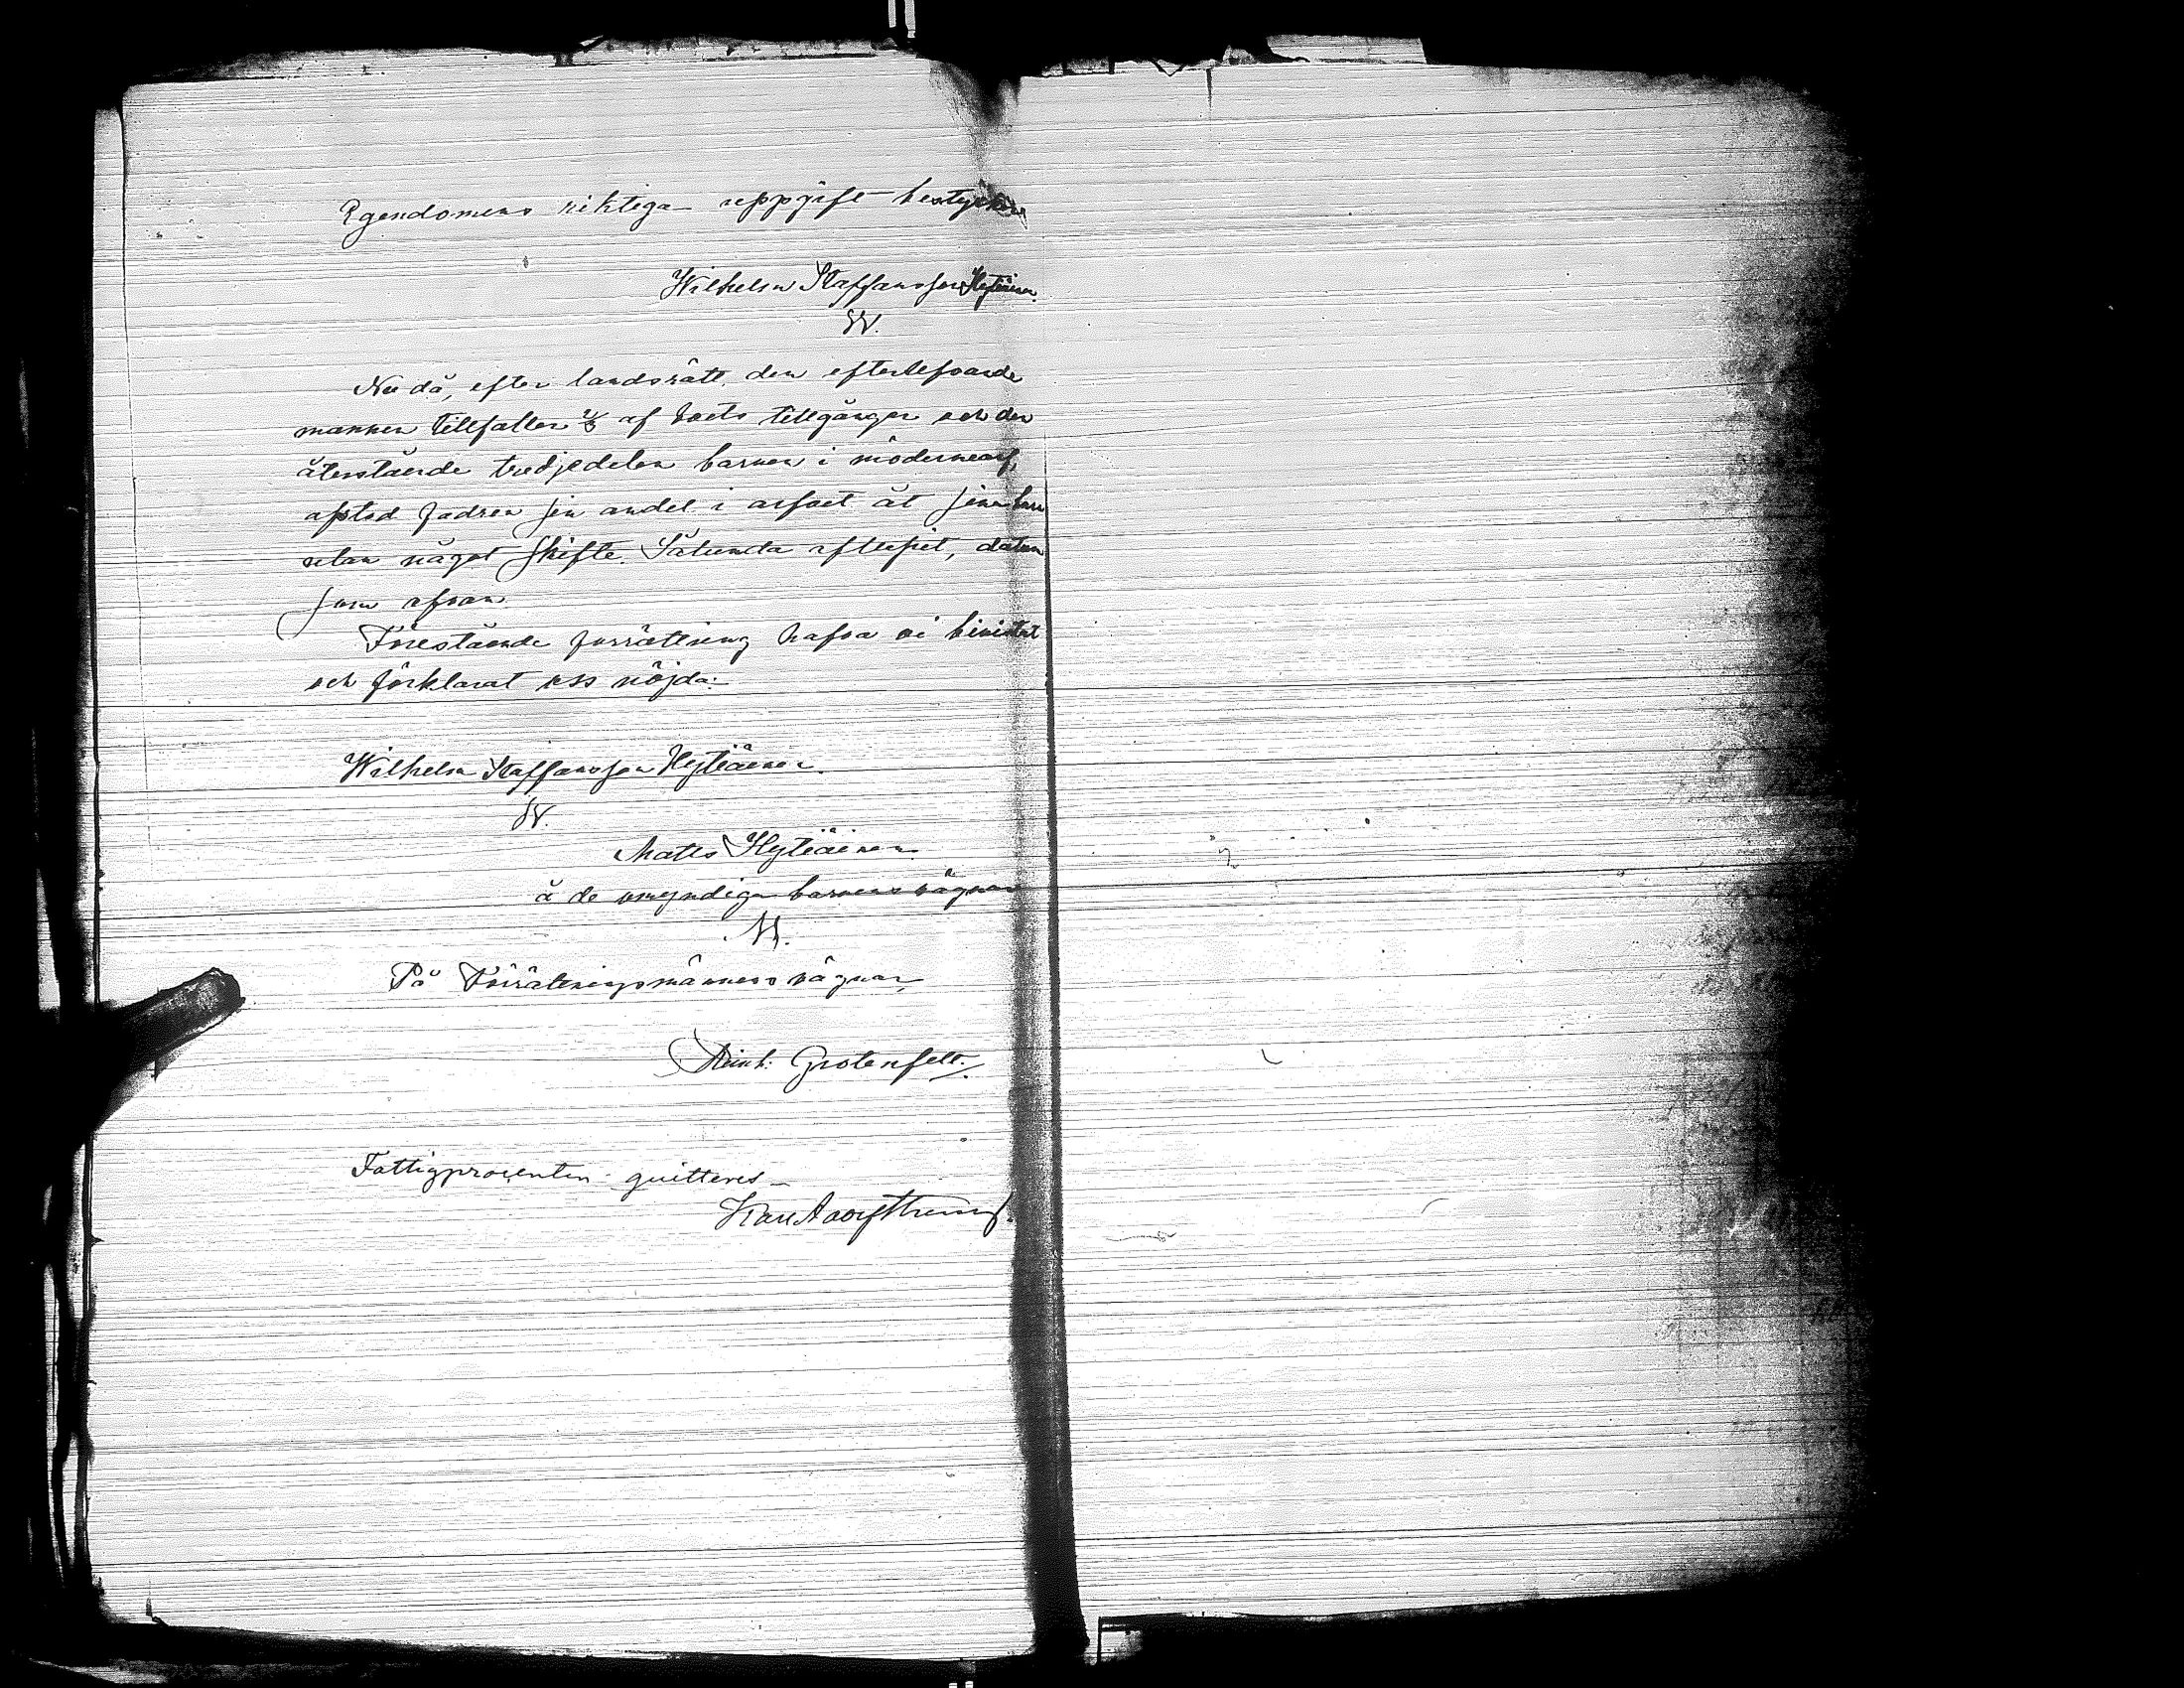 Egendomens riktiga uppgift bestyrker
Wilhelm Staffansson Hytiäinen.
W.
Nu då, efter landsrätt, den efterlefvande
mannen tillfaller 2/3 af boets tillgångar och den
återstående tredjedelen barnen i mödernearf,
afstod fadren sin andel i arfvet åt sina barn
utan något skifte. Sålunda aflupit, datum
som ofvan
Förestående förrättning hafva vi bivistat
och förklarat oss nöjda:
Wilhelm Staffansson Hytiäinen.
W.
Matts Hytiäinen
å de omyndiga barnens vägnar
M.
På Förrättningsmännens vägnar,
Reinh: Grotenfelt.
Fattigprocenten quitteres